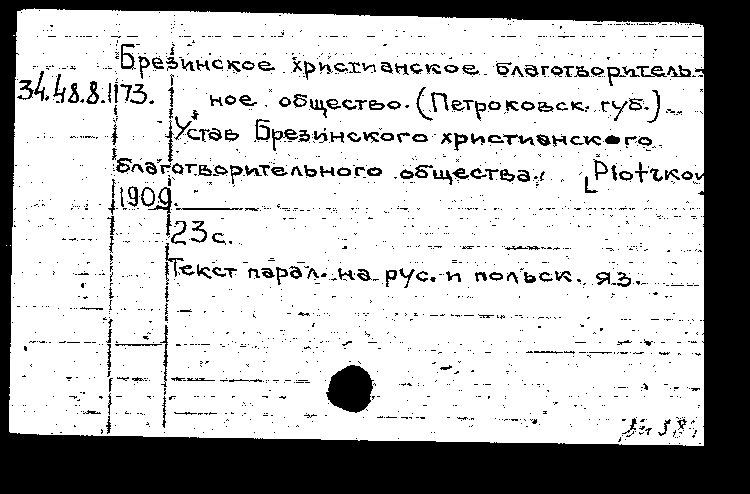 Брезинское христианское благотворитель-
34.48.8.173. ное общество. (Петроковск. губ.)
Устав Брезинского христианского
благотворительного общества. [Piotrkow
1909.
23 с.
Текст парал. на рус. и польск. яз.